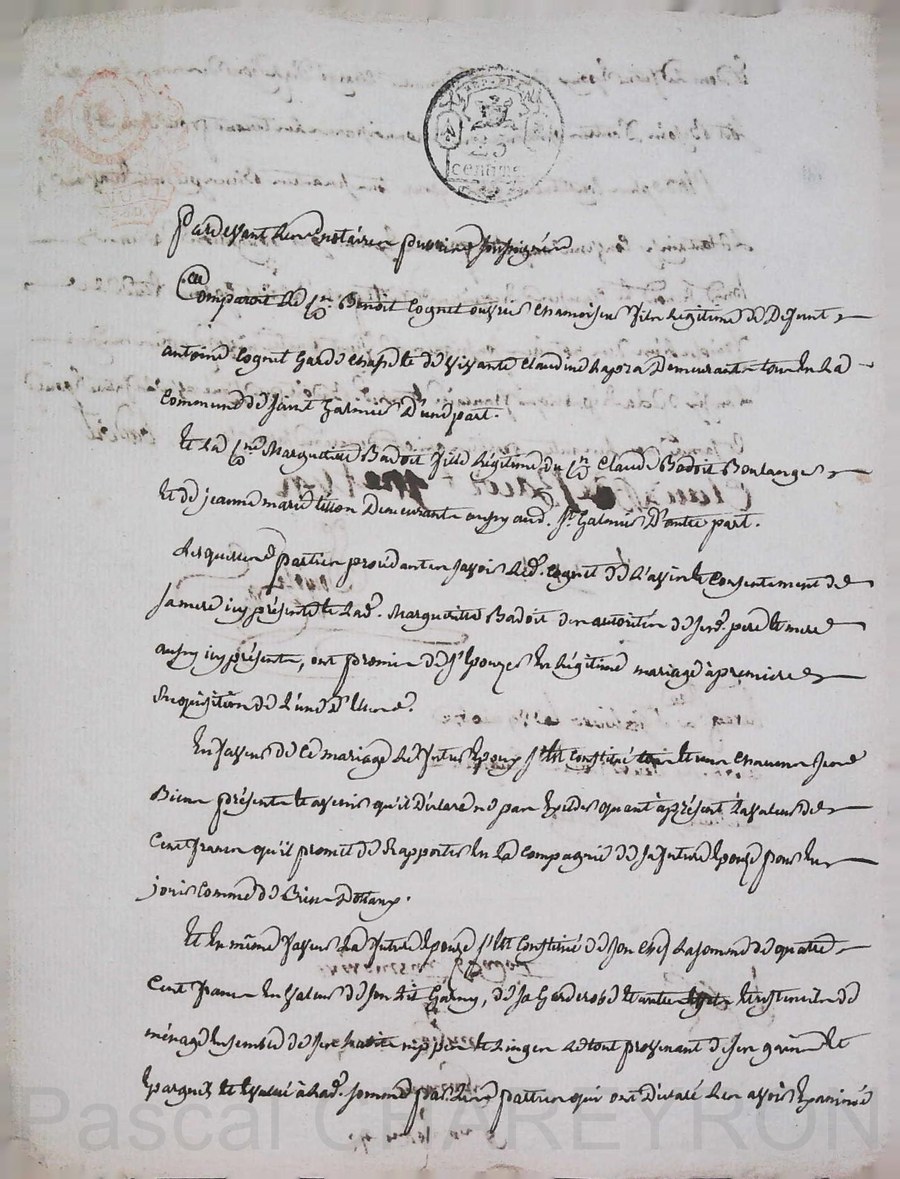 REP. FRA
25
centimes
Pardevant les notaires publics soussignés
Comparoit le Sr. Benoit Cognet ouvrier chamoiseur fils légitime de Defunt
antoine Cognet Garde et de vivante Claudine demeurant tous en la
commune de Saint Galmier d'une part.
Et la De Marguerite Badoit fille légitime du Sr Claude Badoit Boulanger
et de jeanne marie tisson demeurante aussy aud. St. Galmier d'autre part.
Lesquelles parties procédant en savoir led. Cognet de l'avis et consentement de
sa mere icy présente et lad. Marguerite Badoit des autorités de sesd. pere et mere
aussy icy présents, ont promis de s'épouzer en légitime mariage à premiere
requisition de l'un d'eux.
En faveur de ce mariage le futur époux s'est constitué tous et uns chacuns ses
Biens présents et avenir qu'il déclare ne pas exceder quant à présent la valeur de
Cent francs qu'il promet de rapporter en la compagnie de sa future épouze pour en
jouir comme de Biens dotaux.
Et en même faveur la future épouze s'est constituée de son chef la somme de quatre
Cent francs en valeur de son lit Garny, de sa Garderobe et ustenciles de
ménage ensemble de ses nippes et linges le tout provenant de ses gains et
épargnes et évalué à lad. somme par les parties qui ont déclaré les avoir examiné
Pascal CHAREYRON